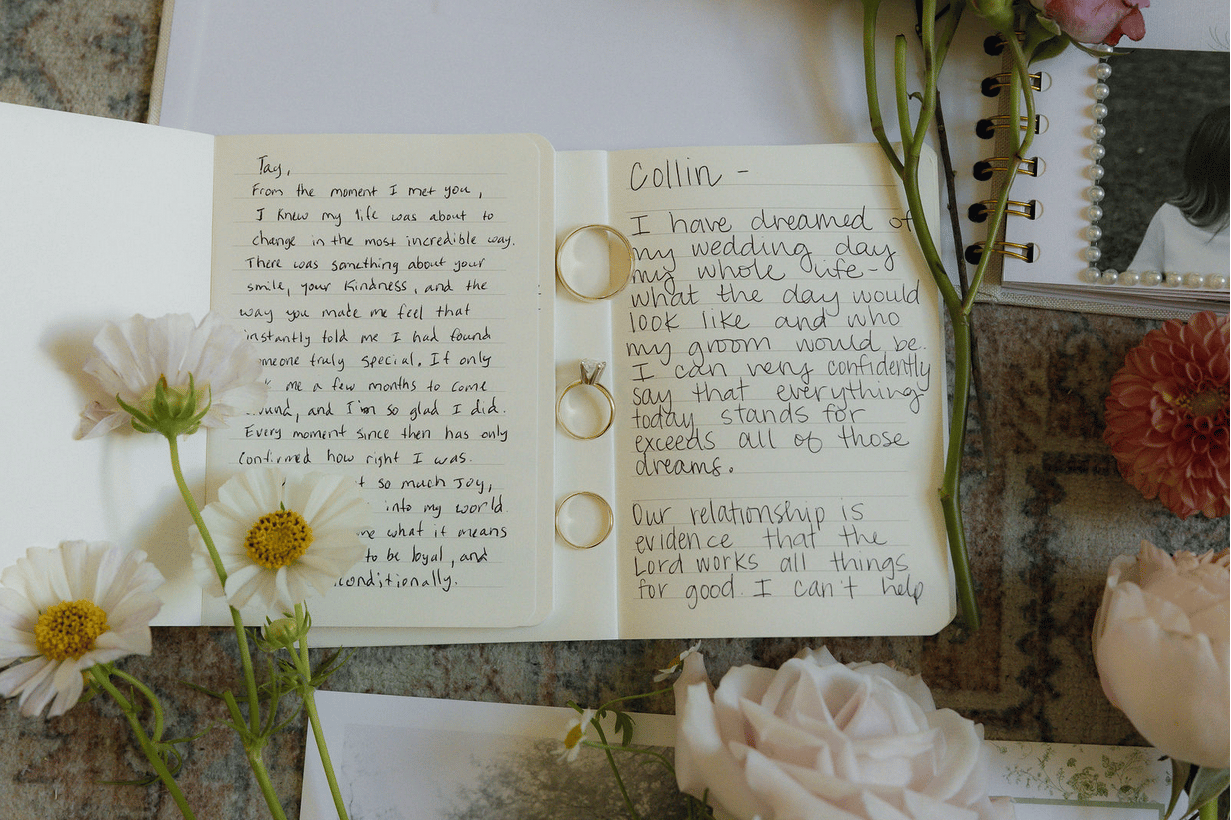 Tay,
From the moment I met you,
I knew my life was about to
change in the most incredible way.
There was something about your
smile, your kindness, and the
way you made me feel that
instantly told me I had found
truly special. It only
me a few months to come
and I'm so glad I did.
Every moment since then has only
confirmed how right I was.
so much Joy,
into my world.
what it means
to be loyal, and
Collin -
I have dreamed of
my wedding day
my whole life-
what the day would
look like and who
my groom would be.
I can very confidently
say that everything
today stands for
exceeds all of those
dreams.
Our relationship is
evidence that the
Lord works all things
for good. I can't help